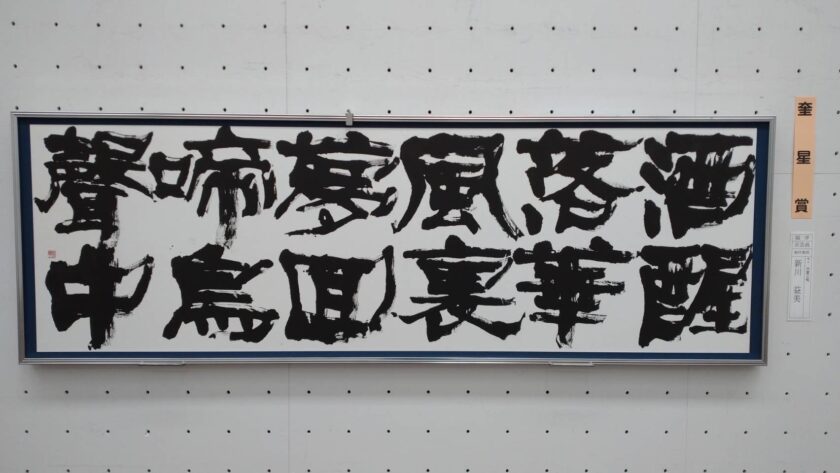 酒醒
落華
風裏
夢回
啼鳥
聲中
奎星賞
新川 益美